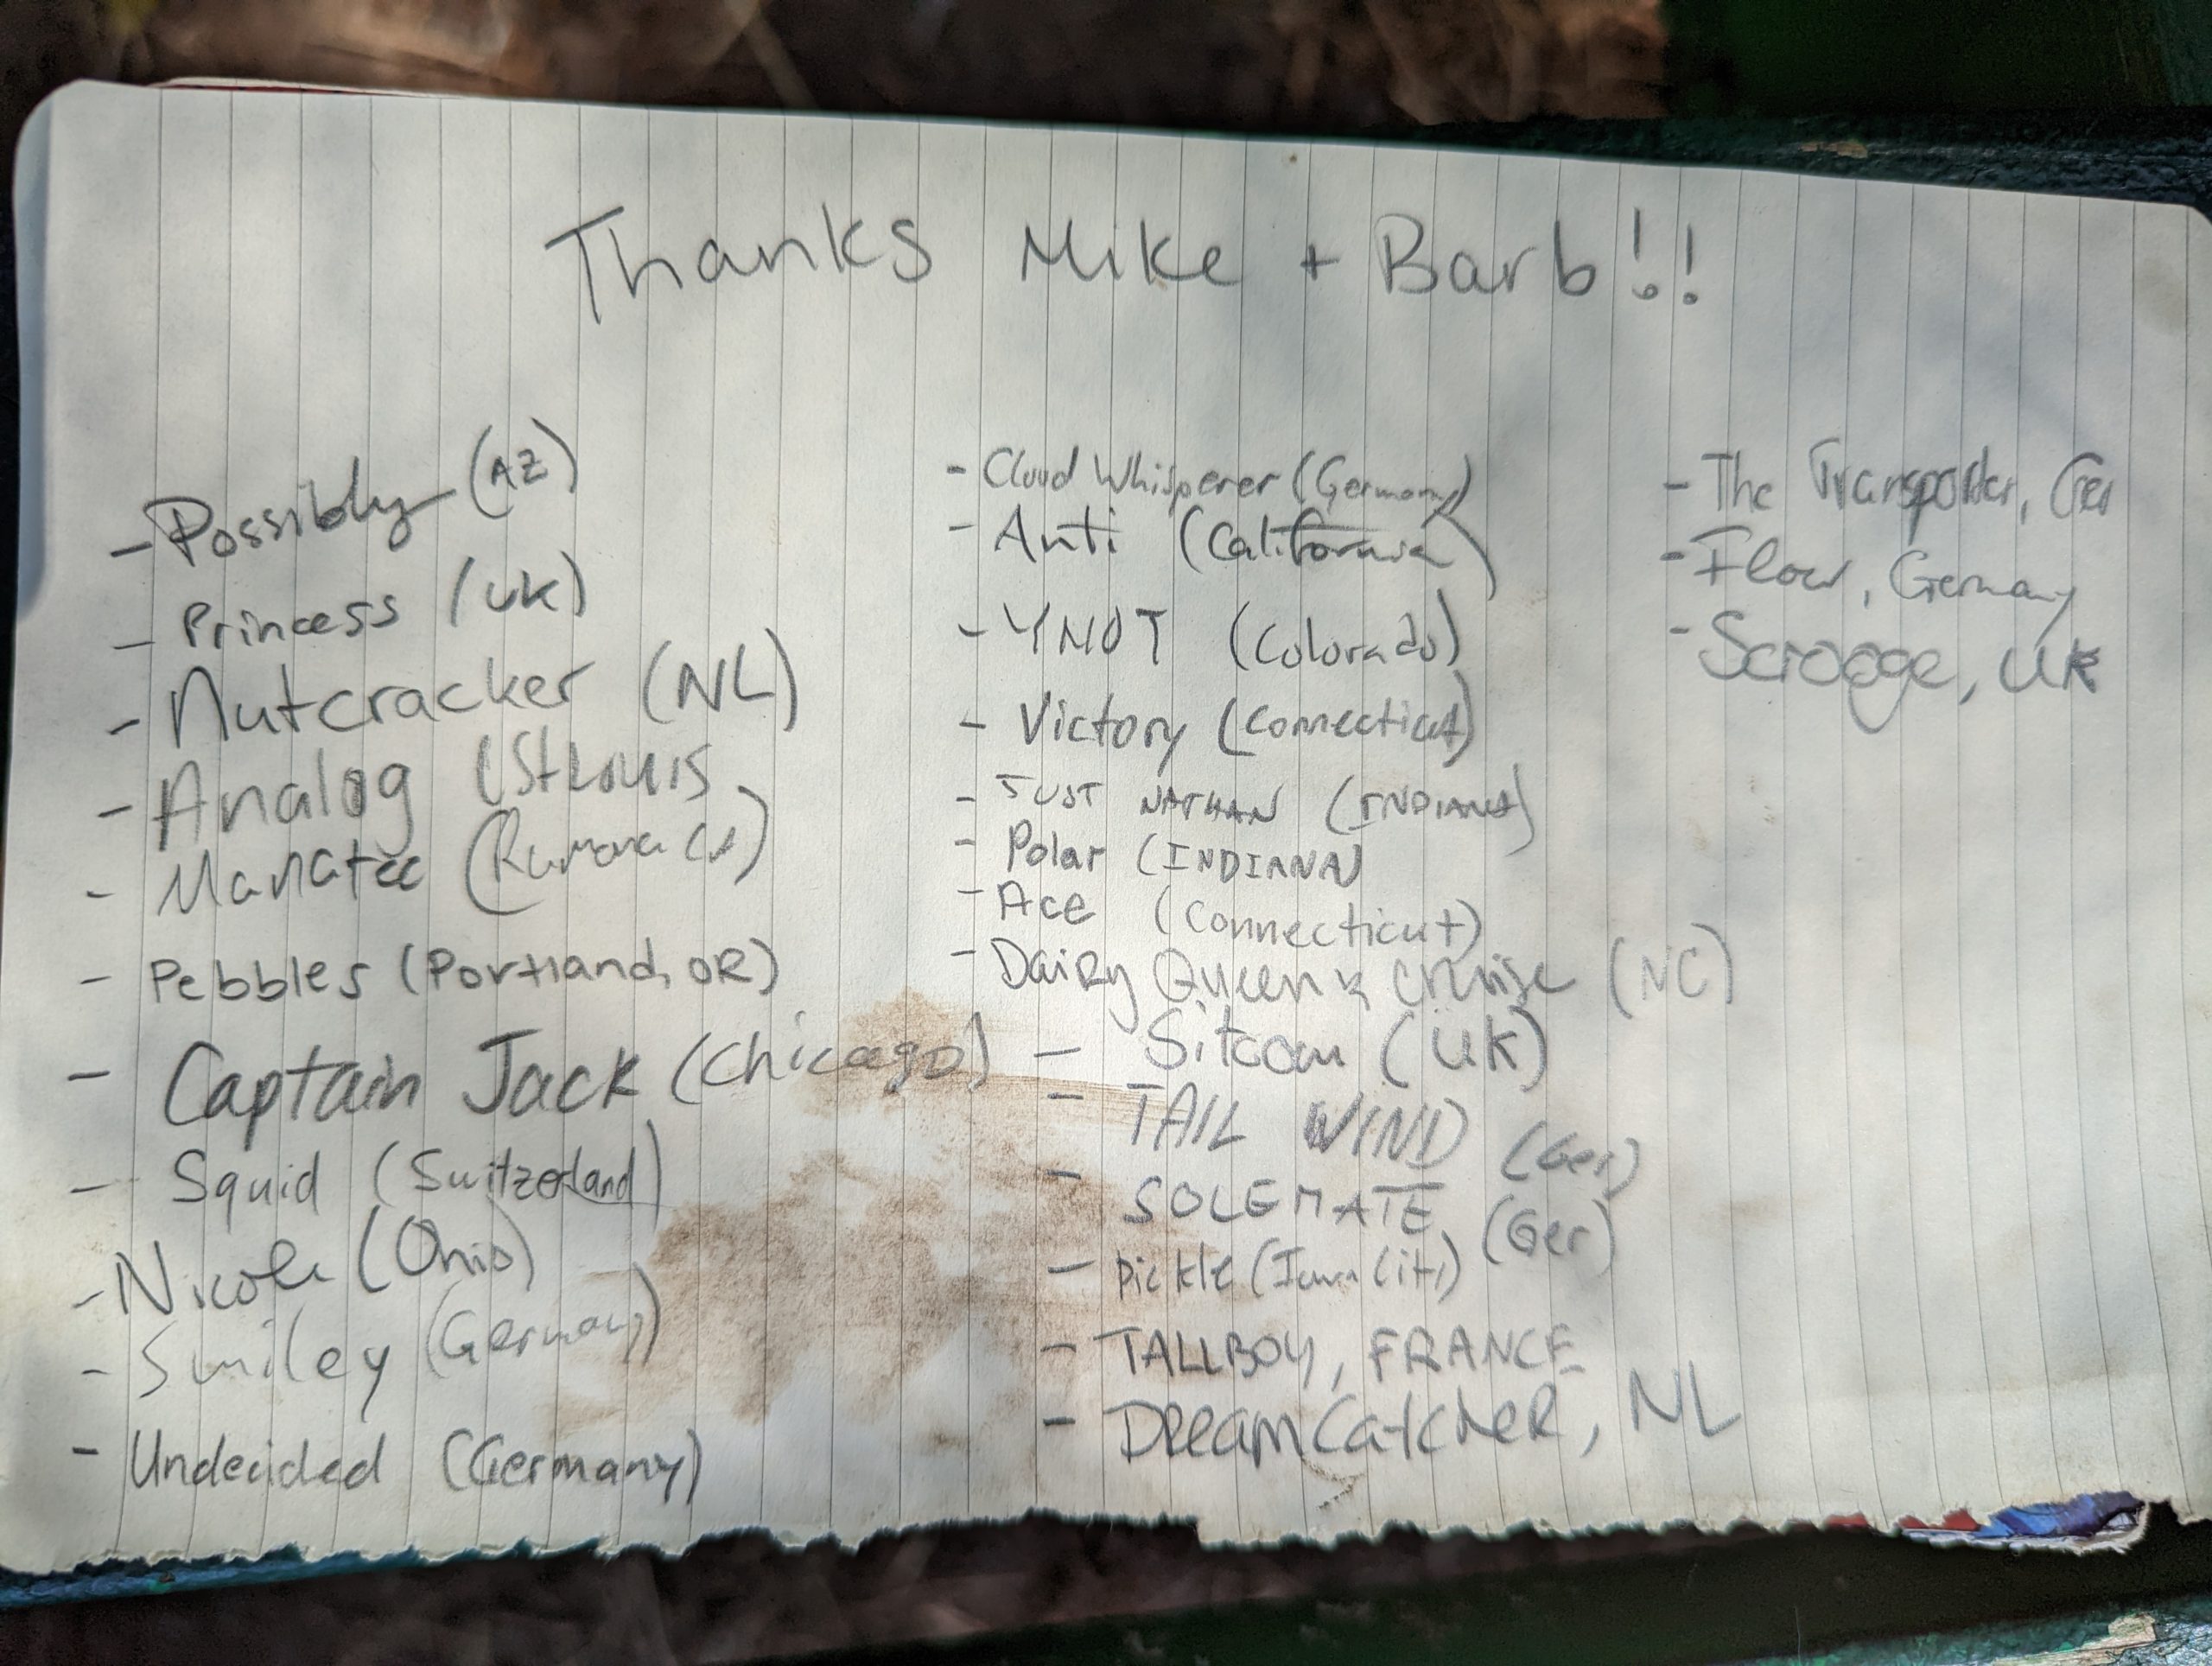 Thanks Mike + Barb!!
- Possibly (AZ)
- Princess (UK)
- Nutcracker (NL)
- Analog (St Louis
- Manatee
- Pebbles (Portland, OR)
- Captain Jack (Chicago)
- Squid (Switzerland)
- Nicole (Ohio)
- Smiley (Germany)
- Undecided (Germany)
- Cloud Whisperer (Germany)
- Anti (California)
- YNOT (Colorado)
- Victory (Connecticut)
- JUST NATHAN (INDIANA)
- Polar (INDIANA)
- Ace (Connecticut)
- Dairy Queen & cruise (NC)
- Sitcom (UK)
- TAIL WIND (Ger)
- SOLEMATE (Ger)
- Pickle (Iowa City)
- TALLBOY, FRANCE
- DReamCatcheR, NL
- The Transporter, Ger
- Flow, Germany
- Scrooge, UK